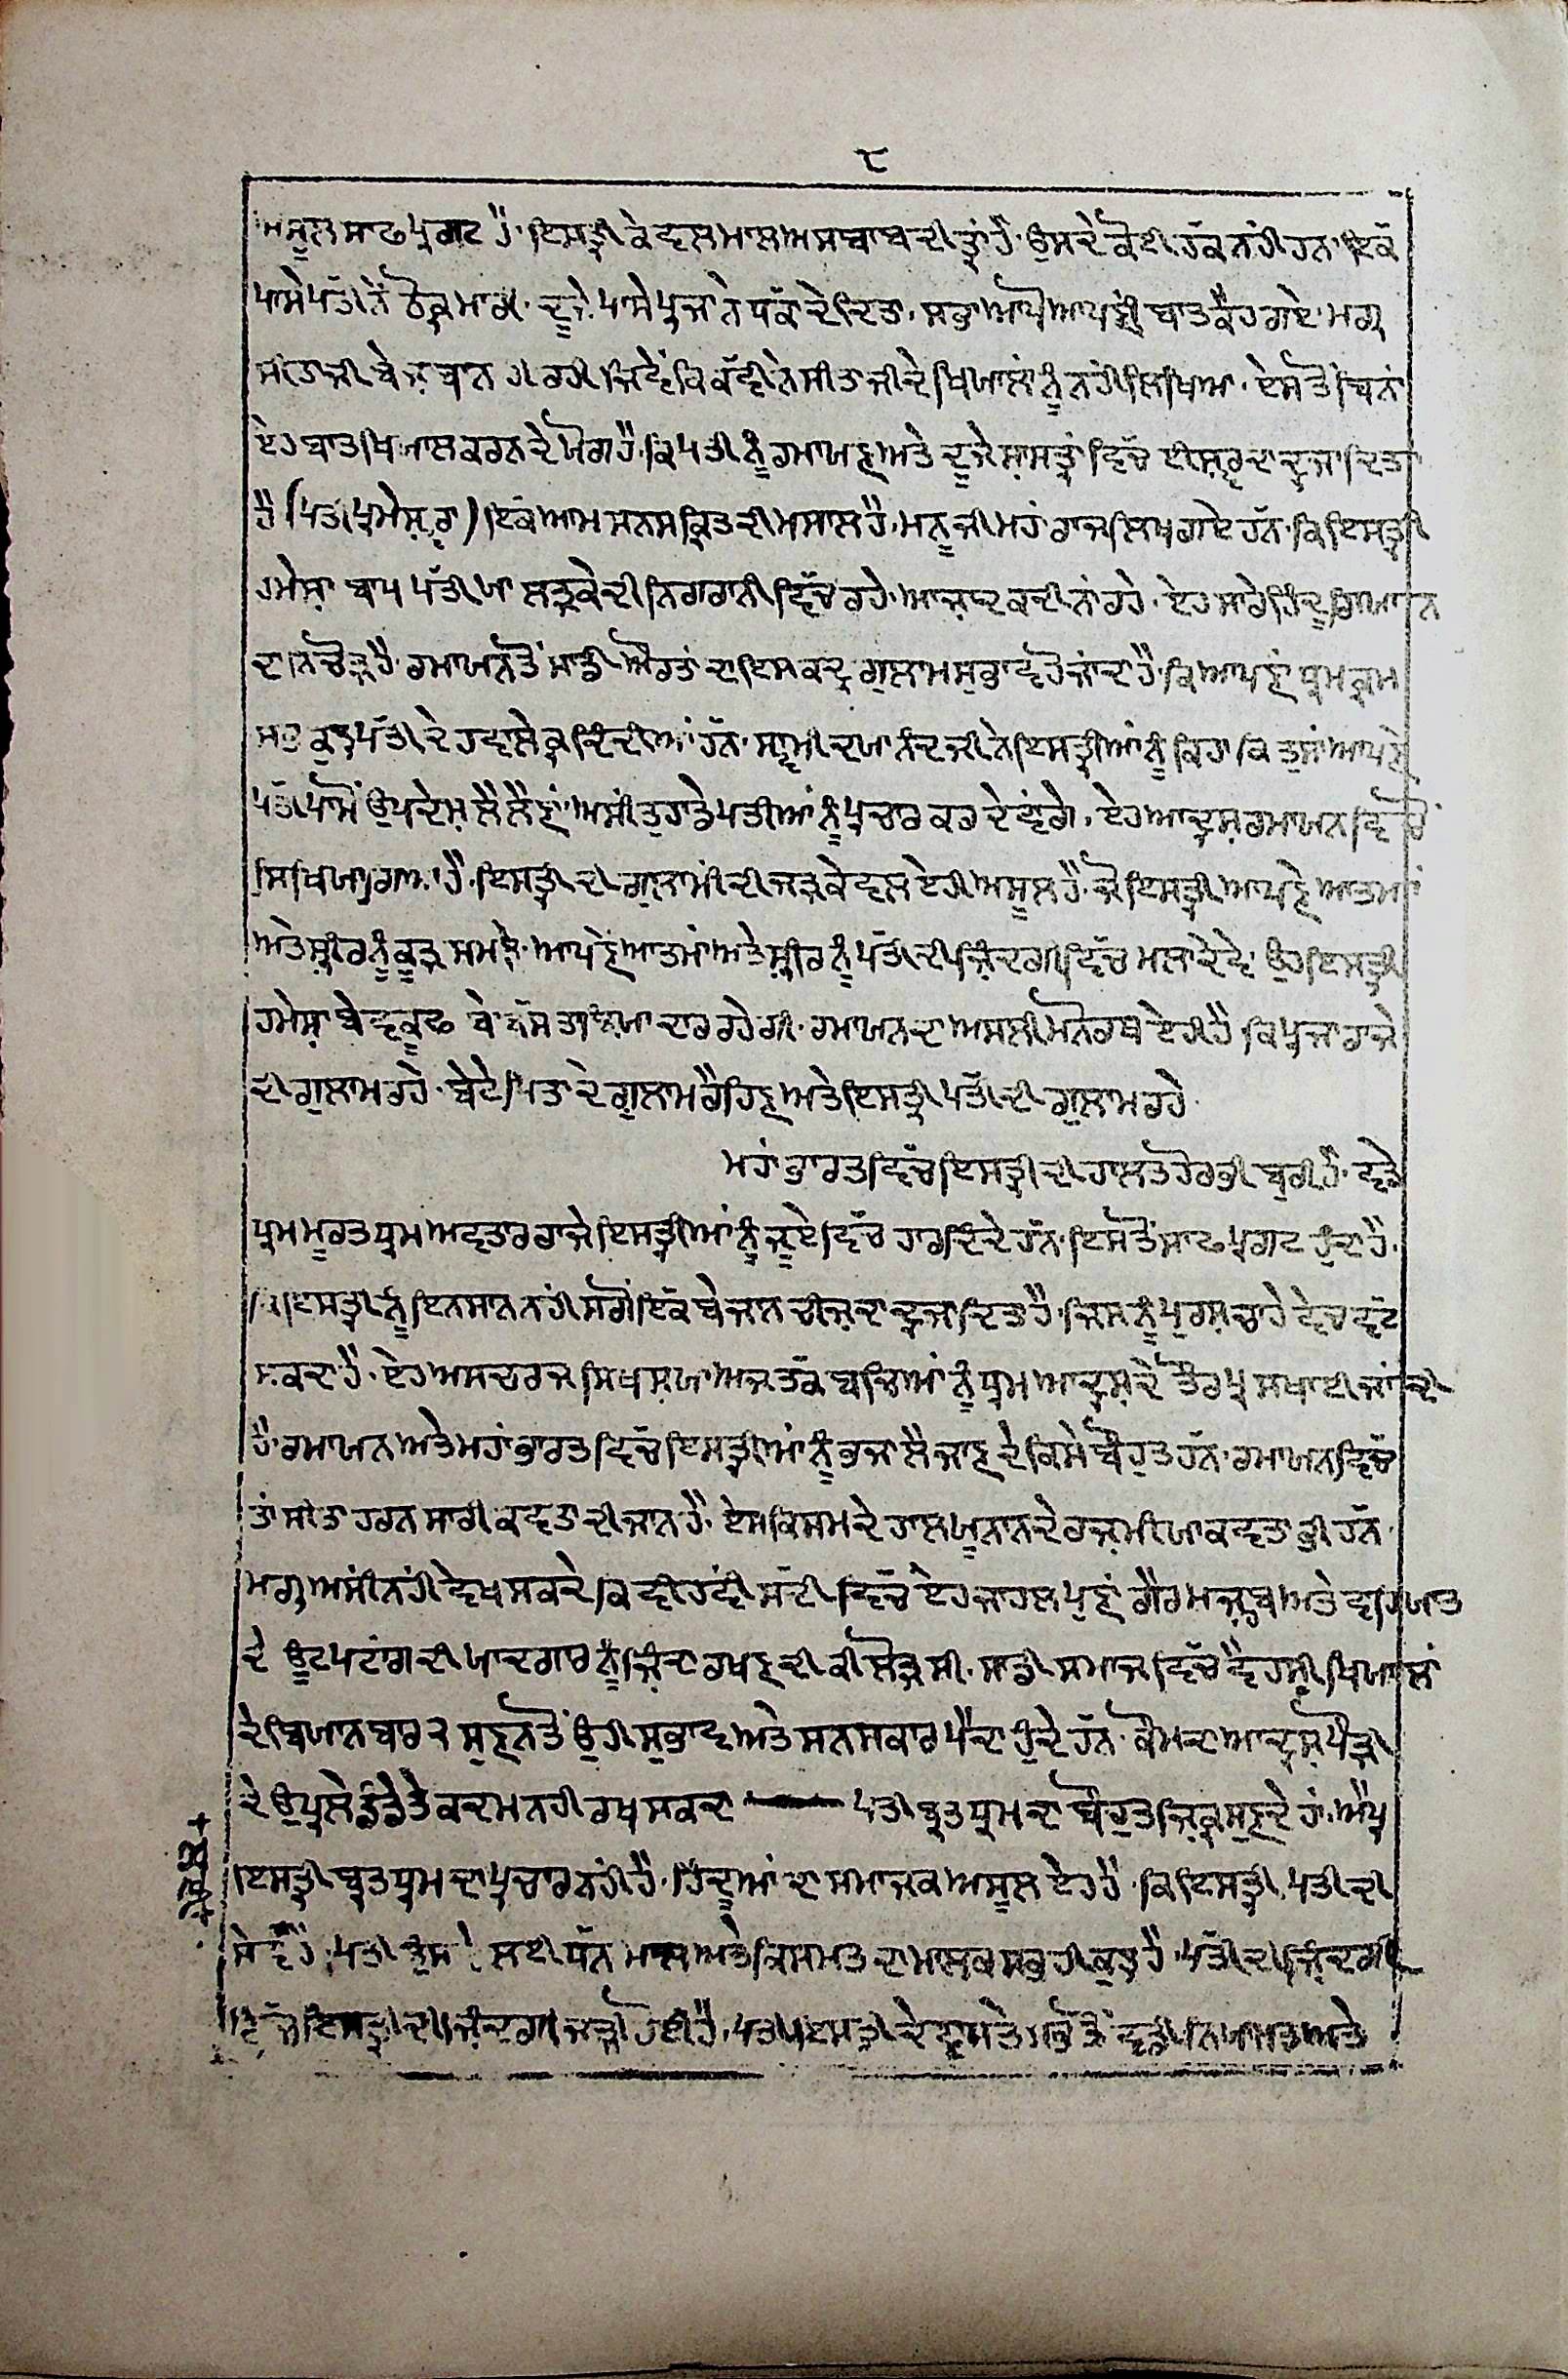 ੮
ਅਸੂਲ ਸਾਫ ਪ੍ਰਗਟ ਹੈ. ਇਸਤ੍ਰੀ ਕੇਵਲ ਮਾਲ ਅਸਬਾਬ ਦੀ ਤ੍ਰਾਂ ਹੈ. ਉਸਦੇ ਕੋਈ ਹੱਕ ਨਹੀਂ ਹਨ. ਇਕੱ
ਪਾਸੇ ਪੱਤੀ ਨੇਂ ਠੋਕ੍ਰ ਮਾਰੀ. ਦੂਜੇ ਪਾਸੇ ਪ੍ਰਜਾ ਨੇ ਧਕੱਾ ਦੇ ਦਿਤਾ. ਸਭਾ ਆਪੋ ਆਪਣੀ ਬਾਤ ਕੈਹ ਗਏ ਮਗ੍ਰ
ਸੀਤਾ ਜੀ ਬੇਜ਼ਬਾਨ ਹੀ ਰਹੀ ਜਿਵੇਂ ਕਿ ਕੱਵੀ ਨੇ ਸੀਤਾ ਜੀ ਦੇ ਖਿਯਾਲਾਂ ਨੂੰ ਨਹੀਂ ਲਿਖਿਆ. ਏਸ ਤੋਂ ਬਿਨਾਂ
ਏਹ ਬਾਤ ਖਿਯਾਲ ਕਰਨ ਦੇ ਯੋਗ ਹੈ. ਕਿ ਪਤੀ ਨੂੰ ਰਮਾਯਣ ਅਤੇ ਦੂਜੇ ਸ਼ਾਸਤ੍ਰਾਂ ਵਿੱਚ ਈਸ਼੍ਵਰ ਦਾ ਦ੍ਰਜਾ ਦਿਤਾ
ਹੈ (ਪਤੀ ਪ੍ਰਮੇਸ਼੍ਵਰਾ) ਇਕੱ ਆਮ ਸਨਸਕ੍ਰਿਤ ਦੀ ਮਸਾਲ ਹੈ. ਮਨੂ ਜੀ ਮਹਾਂਰਾਜ ਲਿਖ ਗਏ ਹੱਨ. ਕਿ ਇਸਤ੍ਰੀ
ਹਮੇਸ਼ਾ ਬਾਪ ਪੱਤੀ ਯਾ ਲੜਕੇ ਦੀ ਨਿਗਰਾਨੀ ਵਿੱਚ ਰਹੇ. ਆਜ਼ਾਦ ਕਦੀ ਨਾਂ ਰਹੇ. ਏਹ ਸਾਰੇ ਹਿੰਦੂ
ਦਾ ਨਿਚੋੜ ਹੈ. ਰਮਾਯਨ ਤੋਂ ਸਾਡੀ ਔਰਤਾਂ ਦਾ ਇਸ ਕਦ੍ਰ ਗੁਲਾਮ ਸੁਭਾਵ ਹੋ ਜਾਂਦਾ ਹੈ. ਕਿ ਆਪਣਾਂ ਧ੍ਰਮ ਕ੍ਰਮ
ਸਭ ਕੁਝ ਪੱਤੀ ਦੇ ਹਵਾਲੇ ਕ੍ਰ ਦਿੰਦੀਆਂ ਹੱਨ. ਸ੍ਵਾਮੀ ਦਯਾਨੰਦ ਜੀ ਨੇ ਇਸਤ੍ਰੀਆਂ ਨੂੰ ਕਿਹਾ ਕਿ ਤੁਸਾਂ ਆਪਣੇ
ਪਤੀ ਪਾਸੋਂ ਉਪਦੇਸ਼ ਲੈ ਲੈਣਾਂ. ਅਸੀਂ ਤੁਹਾਡੇ ਪਤੀਆਂ ਨੂੰ ਪ੍ਰਚਾਰ ਕਰ ਦੇਵਾਂਗੇ. ਏਹ ਆਦ੍ਰਸ਼ ਰਮਾਯਨ ਵਿਚੋਂ
ਸਿਖਿਯਾ ਗਯਾ ਹੈ. ਇਸਤ੍ਰੀ ਦੀ ਗੁਲਾਮੀ ਦੀ ਜੜ ਕੇਵਲ ਏਹੀ ਅਸੂਲ ਹੈ. ਜੋ ਇਸਤ੍ਰੀ ਆਪਣੇ ਆਤਮਾਂ
ਅਤੇ ਸ਼੍ਰੀਰ ਨੂੰ ਕੂੜ ਸਮਝੇ. ਆਪਣੇਂ ਆਤਮਾਂ ਅਤੇ ਸ਼੍ਰੀਰ ਨੂੰ ਪੱਤੀ ਦੀ ਜ਼ਿੰਦਗੀ ਵਿੱਚ ਮਲਾ ਦੇਵੇ. ਉਹ ਇਸਤ੍ਰੀ
ਹਮੇਸ਼ਾ ਬੇਵਕੂਫ ਬੇ ਰਹੇਗੀ. ਰਮਾਯਨ ਦਾ ਅਸਲੀ ਮਨੋਰਥ ਏਹੀ ਹੈ. ਕਿ ਪ੍ਰਜਾ ਰਾਜੇ
ਦੀ ਗੁਲਾਮ ਰਹੇ. ਬੇਟੇ ਪਿਤਾ ਦੇ ਗੁਲਾਮ ਰੈਹਿਣ ਅਤੇ ਇਸਤ੍ਰੀ ਪਤੀ ਦੀ ਗੁਲਾਮ ਰਹੇ.
ਮਹਾਂ ਭਾਰਤ ਵਿੱਚ ਇਸਤ੍ਰੀ ਦੀ ਹਾਲਤ ਹੋਰ ਭੀ ਬੁਰੀ ਹੈ. ਵਡੇ
ਧ੍ਰਮ ਮੂਰਤ ਧ੍ਰਮ ਅਵਤਾਰ ਰਾਜੇ ਇਸਤ੍ਰੀਆਂ ਨੂੰ ਜੂਏ ਵਿੱਚ ਹਾਰ ਦਿੰਦੇ ਹੱਨ. ਇਸ ਤੋਂ ਸਾਫ ਪ੍ਰਗਟ ਹੁੰਦਾ ਹੈ.
ਕਿ ਇਸਤ੍ਰੀ ਨੂੰ ਇਨਸਾਨ ਨਹੀਂ ਸਗੋਂ ਇਕੱ ਬੇਜਾਨ ਚੀਜ਼ ਦਾ ਦ੍ਰਜਾ ਦਿਤਾ ਹੈ. ਜਿਸ ਨੂੰ ਪੁਰਸ਼ ਚਾਹੇ ਵੇਚ ਵੱਟ
ਸਕਦਾ ਹੈ. ਏਹ ਅਸਚਰਜ ਸਿਖ੍ਸ਼ਯਾ ਅਜ ਤਕੱ ਬਚਿਆਂ ਨੂੰ ਧ੍ਰਮ ਆਦ੍ਰਸ਼ ਦੇ ਤੌਰ ਪ੍ਰ ਸਖਾਈ ਜਾਂਦੀ
ਹੈ. ਰਮਾਯਨ ਅਤੇ ਮਹਾਂ ਭਾਰਤ ਵਿੱਚ ਇਸਤ੍ਰੀਆਂ ਨੂੰ ਭਜਾ ਲੈ ਜਾਣ ਦੇ ਕਿਸੇ ਬੌਹੁਤ ਹੱਨ. ਰਮਾਯਨ ਵਿੱਚ
ਤਾਂ ਸੀਤਾ ਹਰਨ ਸਾਰੀ ਕਵਤਾ ਦੀ ਜਾਨ ਹੈ. ਏਸ ਕਿਸਮ ਦੇ ਹਾਲ ਯੂਨਾਨ ਦੇ ਰਜ਼ਮੀਯਾ ਕਵਤਾ ਭੀ ਹੱਨ.
ਮਗ੍ਰ ਅਸੀਂ ਨਹੀਂ ਵੇਖ ਸਕਦੇ ਕਿ ਵੀਹਵੀਂ ਸੱਦੀ ਵਿੱਚ ਏਹ ਜਾਹਲ ਪੁਣਾਂ ਗੈਰ ਮਜ਼੍ਹਬ ਅਤੇ ਵਾਹਿਯਾਤ
ਦੇ ਊਟ ਪਟਾਂਗ ਦੀ ਯਾਦਗਾਰ ਨੂੰ ਜ਼ਿੰਦਾ ਰਖਣ ਦੀ ਕੀ ਲੋੜ ਸੀ. ਸਾਡੀ ਸਮਾਜ ਵਿੱਚ ਵੈਹਸ਼ੀ ਖਿਯਾਲਾਂ
ਦੇ ਬਿਯਾਨ ਬਾਰ ੨ ਸੁਣਨ ਤੋਂ ਉਹੀ ਸੁਭਾਵ ਅਤੇ ਸਨਸਕਾਰ ਪੈਦਾ ਹੁੰਦੇ ਹੱਨ. ਕੌਮ ਦਾ ਆਦ੍ਰਸ਼ ਪੌੜੀ
ਦੇ ਉਪ੍ਰਲੇ ਡੰਡੇ ਤੇ ਕਦਮ ਨਹੀ ਰਖ ਸਕਦਾ ਪਤੀ ਬ੍ਰਤ ਧ੍ਰਮ ਦਾ ਬੌਹੁਤ ਜ਼ਿਕ੍ਰ ਸੁਣਦੇ ਹਾਂ.
ਇਸਤ੍ਰੀ ਬ੍ਰਤ ਧ੍ਰਮ ਦਾ ਪ੍ਰਚਾਰ ਨਹੀਂ ਹੈ. ਹਿੰਦੂਆਂ ਦਾ ਸਮਾਜਕ ਅਸੂਲ ਏਹ ਹੈ. ਕਿ ਇਸਤ੍ਰੀ ਪਤੀ ਦੀ
ਹੈ. ਪਤੀ ਲਈ ਧੱਨ ਮਾਲ ਅਤੇ ਕਿਸਮਤ ਦਾ ਮਾਲਕ ਸਭ ਹੀ ਕੁਝ ਹੈ. ਪੱਤੀ ਦੀ ਜ਼ਿੰਦਗੀ
ਇਸਤ੍ਰੀ ਦੀ ਜ਼ਿੰਦਗੀ ਜੜੀ ਹੋਈ ਹੈ. ਪਤੀ ਇਸਤ੍ਰੀ ਦੇ ਵਾਸਤੇ ਅਤੇ